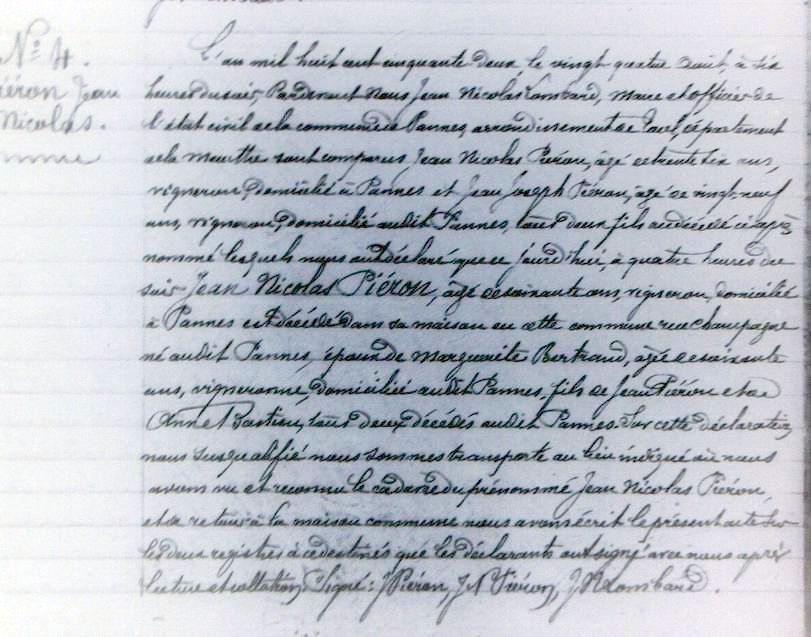 N° 4.
Piéron Jean
Nicolas.
L'an mil huit cent cinquante deux, le vingt quatre Août, à six
heures du soir, Pardevant Nous Jean Nicolas Lombard, Maire et officier de
l'état civil de la commune de Pannes, arrondissement de Toul, département
de la meurthe sont comparus Jean Nicolas Piéron, âgé de trente six ans,
vigneron, domicilié à Pannes et Jean Joseph Piéron, âgé de vingt neuf
ans, vigneron, domicilié audit Pannes, tous deux fils au décédé ci après
nommé lesquels nous ont déclaré que ce jourd'hui, à quatre heures du
soir Jean Nicolas Piéron, âgé de soixante ans, vigneron, domicilié
à Pannes est décédé dans sa maison en cette commune rue champagne
né audit Pannes, époux de Marguerite Bertrand, âgée de soixante
ans, vigneronne, domiciliée audit Pannes, fils de Jean Piéron et de
Anne Bastien, tous deux décédés audit Pannes. Sur cette déclaration,
nous susqualifié nous sommes transporté au lieu indiqué où nous
avons vu et reconnu le cadavre du prénommé Jean Nicolas Piéron,
et de retour à la maison commune nous avons écrit le présent acte sur
les deux registres à ce destinés que les déclarants ont signé avec nous après
lecture et collation. Signé: J Piéron, J N Piéron, J N Lombard.